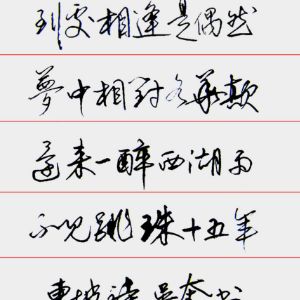 到處相逢是偶然
夢中相對各華顛
還來一醉西湖雨
不見跳珠十五年
東坡詩